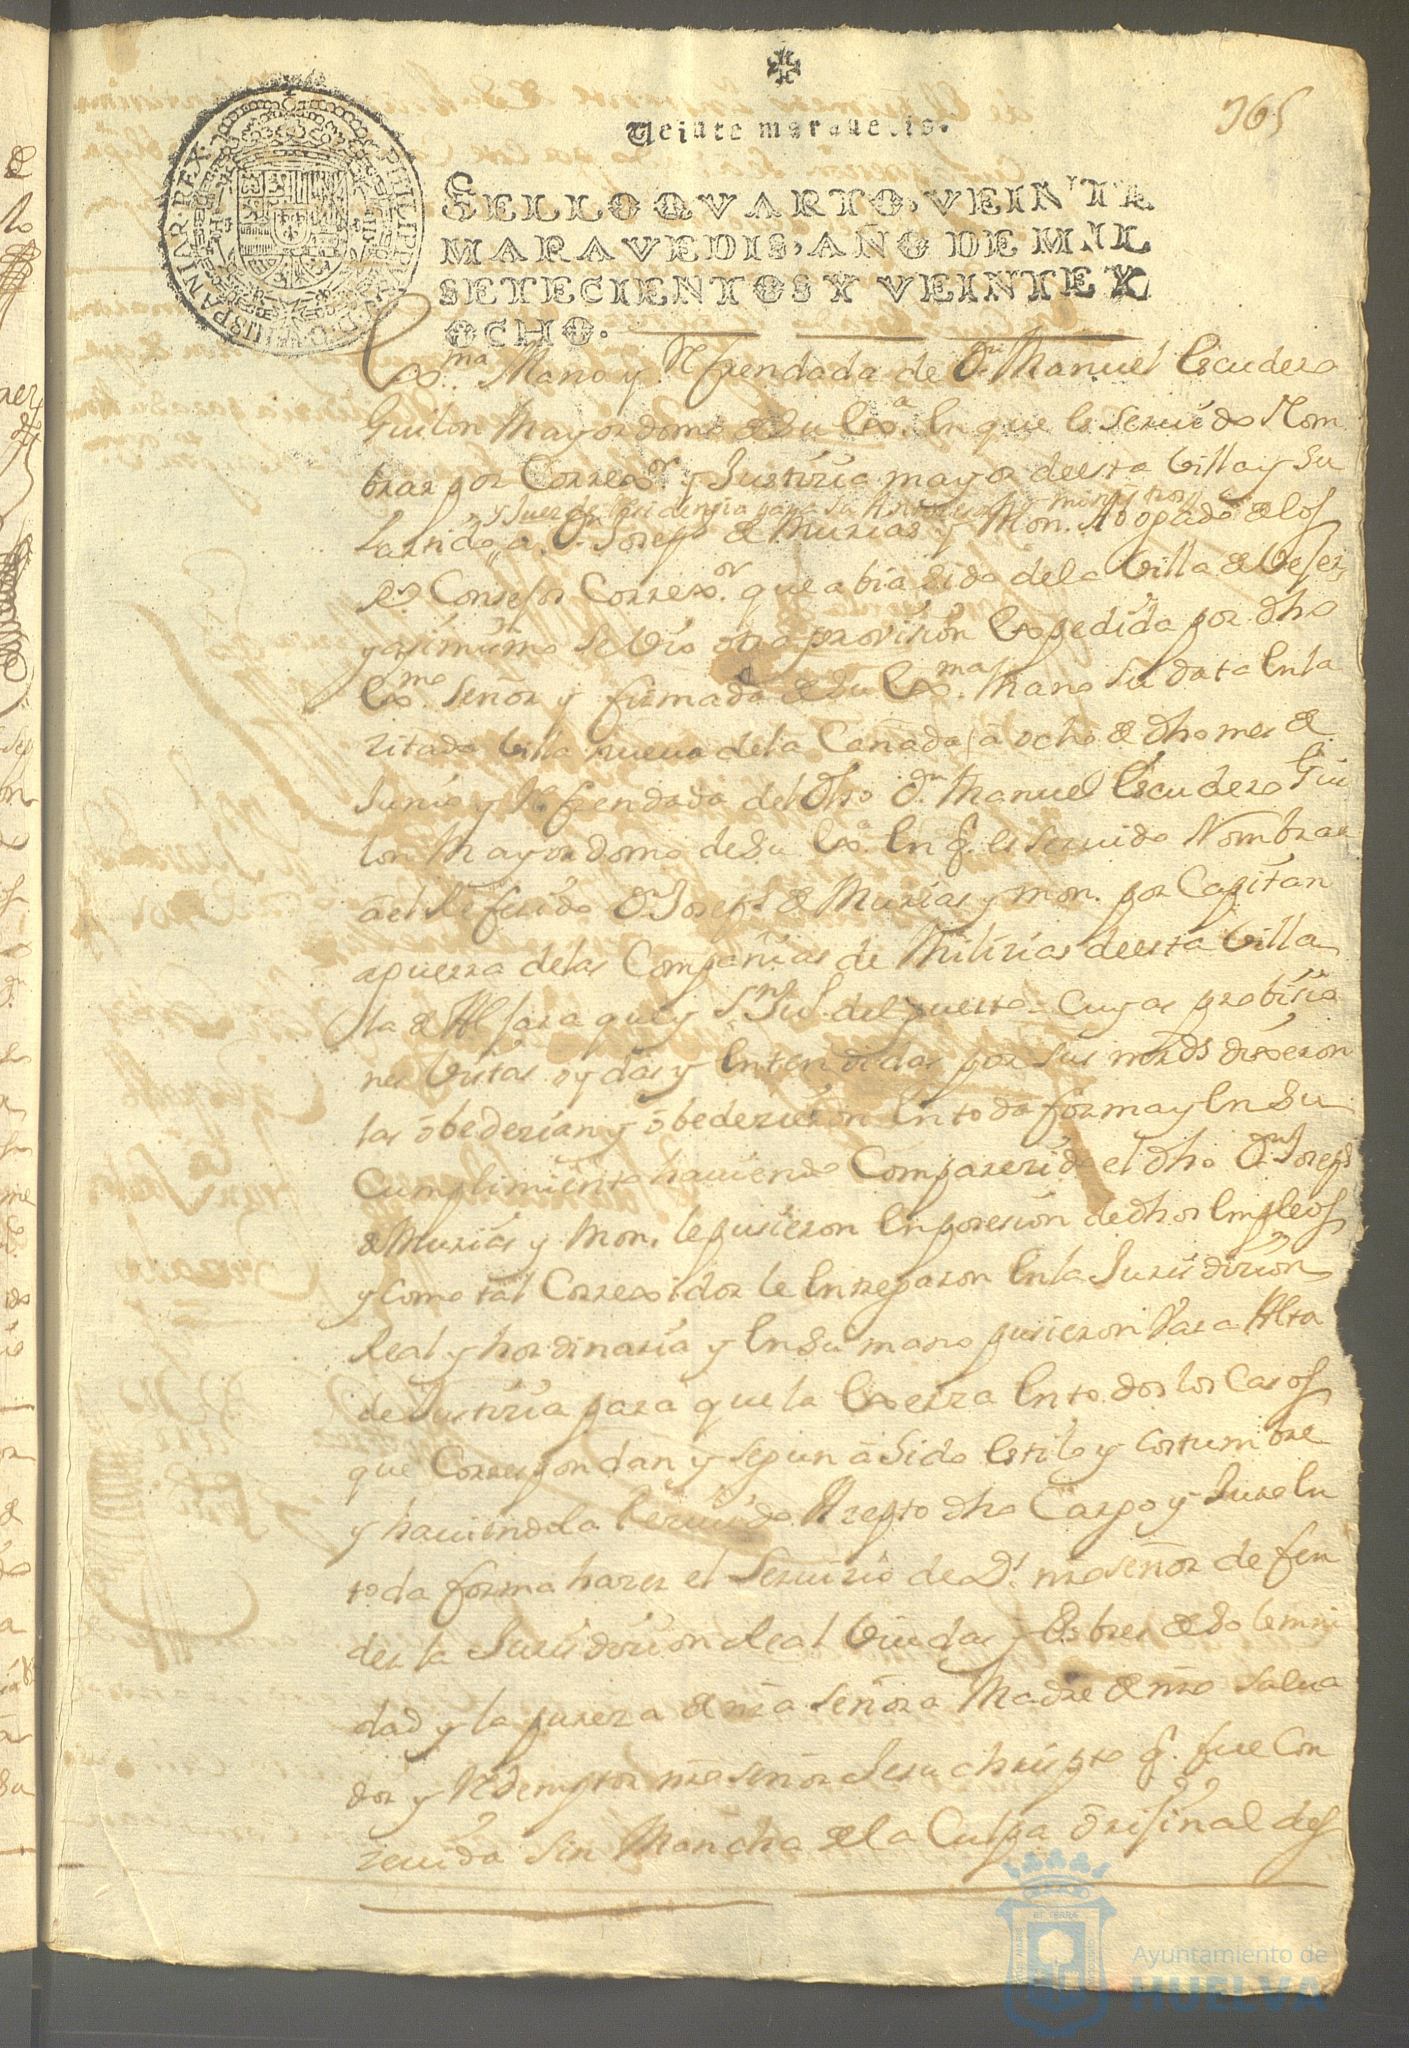 365
Veinte maravedis.
SELLO QVARTO, VEINTE
MARAVEDIS, AÑO DE MIL
SETECIENTOS Y VEINTE Y
OCHO.
PHILIPPUS V D G HISPANIAR REX
Exma Mano y Refrendada de Dn Manuel Escudero
Guilon Mayordomo de Su Exa. En que es Seruido Nom
brar por Correxor. y Justizia mayor de esta Villa y Su
y Juez de Residencia para su Antezesor y ministros
Partido, a Dn Joseph de Murias y Mon. Abogado de los
Rs. Consejos Correxor. que abia Sido de la Villa de Vejer,
y asimismo Se Vio otra provision Expedida por dho
Exmo. Señor y firmada de Su Exma. Mano Su data En la
zitada Villa nueva de la Cañada a ocho de dho mes de
Junio y Refrendada del dho Dn. Manuel Escudero Gui
lon Mayordomo de Su Exa. En q. es Seruido Nombrar
a el Referido Dn Joseph de Murias y Mon. por Capitan
a guerra de las Compañias de Milizias de esta Villa
la de Aljaraque y Sn Juo. del puerto = Cuyas probisio
nes Vistas oydas y Entendidas por sus mrds dixeron
las obedezian y obedezieron En toda forma y En Su
Cumplimiento hauiendo Comparezido el dho Dn Joseph
de Murias y Mon. le pusieron En posesion de dhos Empleos
y Como tal Correxidor le Entregaron En la Jurisdizion
Real y hordinaria y En Su mano pusieron Vara Alta
de Justizia para que la Exerza En todos los Casos
que Correspondan y segun a Sido Estilo y costumbre
y hauiendola Rezeuido Azepto dho Cargo y Juro En
toda forma hazer el Seruizio de Ds. nro señor defen
der la Jurisdizion Real Viudas y Pobres de Solemni
dad y la pureza de nra Señora Madre de nro Salua
dor y Redemptor nro señor Jesuchripto q. fue Con
zeuida Sin Mancha de la Culpa original des
Ayuntamiento de
HUELVA